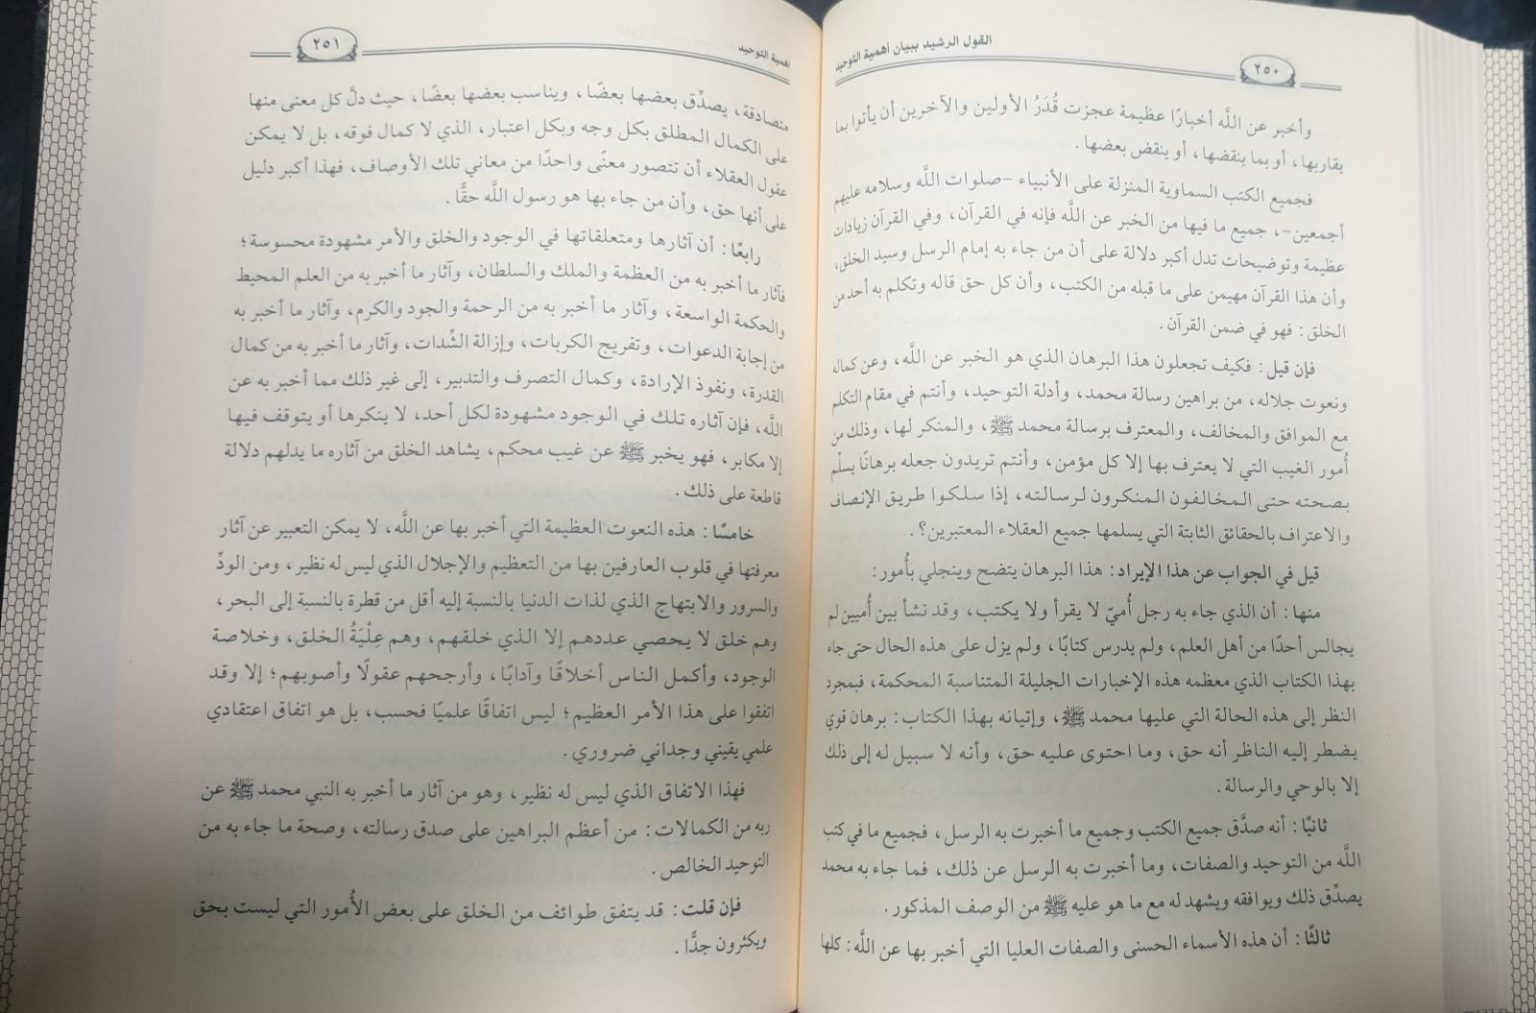 القول الرشيد ببيان أهمية التوحيد
٢٥٠
وأخبر عن اللَّه أخبارًا عظيمة عجزت قُدَرُ الأولين والآخرين أن يأتوا بما
يقاربها، أو بما ينقضها، أو ينقض بعضها.
فجميع الكتب السماوية المنزلة على الأنبياء -صلوات اللَّه وسلامه عليهم
أجمعين-، جميع ما فيها من الخبر عن اللَّه فإنه في القرآن، وفي القرآن زيادات
عظيمة وتوضيحات تدل أكبر دلالة على أن من جاء به إمام الرسل وسيد الخلق،
وأن هذا القرآن مهيمن على ما قبله من الكتب، وأن كل حق قاله وتكلم به أحد من
الخلق: فهو في ضمن القرآن.
فإن قيل: فكيف تجعلون هذا البرهان الذي هو الخبر عن اللَّه، وعن كماله
ونعوت جلاله، من براهين رسالة محمد، وأدلة التوحيد، وأنتم في مقام التكلم
مع الموافق والمخالف، والمعترف برسالة محمد ﷺ، والمنكر لها، وذلك من
أُمور الغيب التي لا يعترف بها إلا كل مؤمن، وأنتم تريدون جعله برهانًا يسلِّم
بصحته حتى المخالفون المنكرون لرسالته، إذا سلكوا طريق الإنصاف
والاعتراف بالحقائق الثابتة التي يسلمها جميع العقلاء المعتبرين؟.
قيل في الجواب عن هذا الإيراد: هذا البرهان يتضح وينجلي بأُمور:
منها: أن الذي جاء به رجل أُميّ لا يقرأ ولا يكتب، وقد نشأ بين أُميين لم
يجالس أحدًا من أهل العلم، ولم يدرس كتابًا، ولم يزل على هذه الحال حتى جاء
بهذا الكتاب الذي معظمه هذه الإخبارات الجليلة المتناسبة المحكمة، فبمجرد
النظر إلى هذه الحالة التي عليها محمد ﷺ، وإتيانه بهذا الكتاب: برهان قوي
يضطر إليه الناظر أنه حق، وما احتوى عليه حق، وأنه لا سبيل له إلى ذلك
إلا بالوحي والرسالة.
ثانيًا: أنه صدَّق جميع الكتب وجميع ما أخبرت به الرسل، فجميع ما في كتب
اللَّه من التوحيد والصفات، وما أخبرت به الرسل عن ذلك، فما جاء به محمد
يصدِّق ذلك ويوافقه ويشهد له مع ما هو عليه ﷺ من الوصف المذكور.
ثالثًا: أن هذه الأسماء الحسنى والصفات العليا التي أخبر بها عن اللَّه: كلها
أهمية التوحيد
٢٥١
متصادقة، يصدِّق بعضها بعضًا، ويناسب بعضها بعضًا، حيث دلَّ كل معنى منها
على الكمال المطلق بكل وجه وبكل اعتبار، الذي لا كمال فوقه، بل لا يمكن
عقول العقلاء أن تتصور معنًى واحدًا من معاني تلك الأوصاف، فهذا أكبر دليل
على أنها حق، وأن من جاء بها هو رسول اللَّه حقًّا.
رابعًا: أن آثارها ومتعلقاتها في الوجود والخلق والأمر مشهودة محسوسة؛
فآثار ما أخبر به من العظمة والملك والسلطان، وآثار ما أخبر به من العلم المحيط
والحكمة الواسعة، وآثار ما أخبر به من الرحمة والجود والكرم، وآثار ما أخبر به
من إجابة الدعوات، وتفريج الكربات، وإزالة الشِّدات، وآثار ما أخبر به من كمال
القدرة، ونفوذ الإرادة، وكمال التصرف والتدبير، إلى غير ذلك مما أخبر به عن
اللَّه، فإن آثاره تلك في الوجود مشهودة لكل أحد، لا ينكرها أو يتوقف فيها
إلا مكابر، فهو يخبر ﷺ عن غيب محكم، يشاهد الخلق من آثاره ما يدلهم دلالة
قاطعة على ذلك.
خامسًا: هذه النعوت العظيمة التي أخبر بها عن اللَّه، لا يمكن التعبير عن آثار
معرفتها في قلوب العارفين بها من التعظيم والإجلال الذي ليس له نظير، ومن الودِّ
والسرور والابتهاج الذي لذات الدنيا بالنسبة إليه أقل من قطرة بالنسبة إلى البحر،
وهم خلق لا يحصي عددهم إلا الذي خلقهم، وهم عِلْيَةُ الخلق، وخلاصة
الوجود، وأكمل الناس أخلاقًا وآدابًا، وأرجحهم عقولًا وأصوبهم؛ إلا وقد
اتفقوا على هذا الأمر العظيم؛ ليس اتفاقًا علميًا فحسب، بل هو اتفاق اعتقادي
علمي يقيني وجداني ضروري.
فهذا الاتفاق الذي ليس له نظير، وهو من آثار ما أخبر به النبي محمد ﷺ عن
ربه من الكمالات: من أعظم البراهين على صدق رسالته، وصحة ما جاء به من
التوحيد الخالص.
فإن قلت: قد يتفق طوائف من الخلق على بعض الأُمور التي ليست بحق
ويكثرون جدًّا.